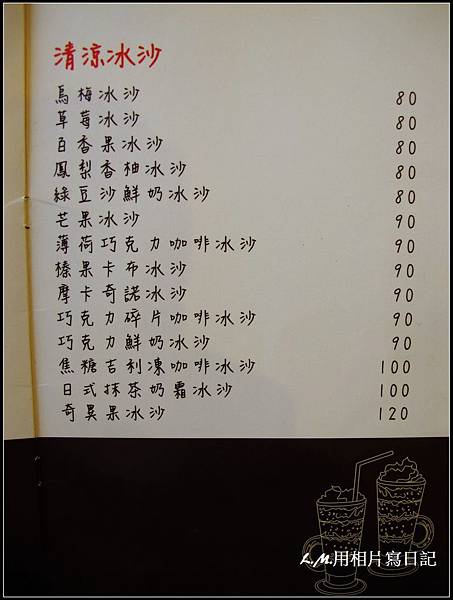 清涼冰沙
烏梅冰沙 80
草莓冰沙 80
百香果冰沙 80
鳳梨香柚冰沙 80
綠豆沙鮮奶冰沙 80
芒果冰沙 90
薄荷巧克力咖啡冰沙 90
榛果卡布冰沙 90
摩卡奇諾冰沙 90
巧克力碎片咖啡冰沙 90
巧克力鮮奶冰沙 90
焦糖吉利凍咖啡冰沙 100
日式抹茶奶霜冰沙 100
奇異果冰沙 120
L.M.用相片寫日記